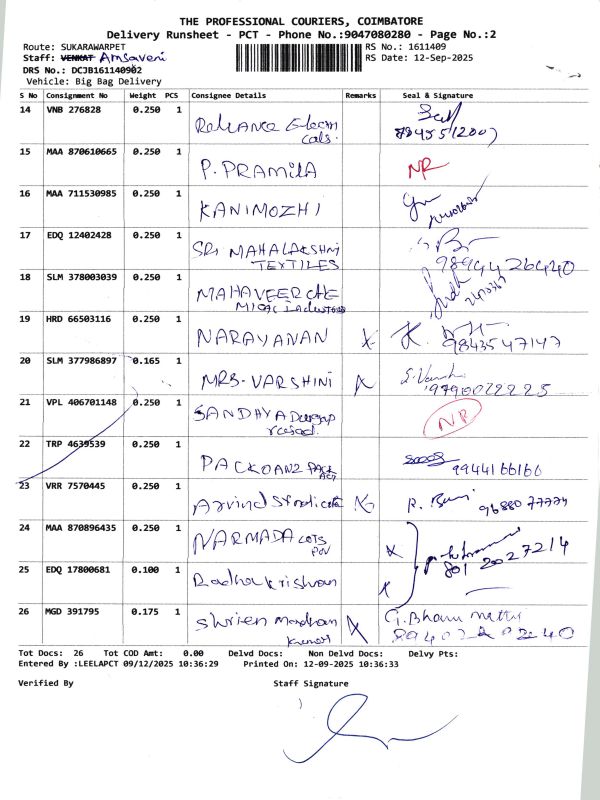 THE PROFESSIONAL COURIERS, COIMBATORE
Delivery Runsheet - PCT - Phone No.:9047080280 - Page No.:2
Route: SUKARAWARPET
RS No.: 1611409
Staff: VENKAT Amsaveni
RS Date: 12-Sep-2025
DRS No.: DCJB161140902
Vehicle: Big Bag Delivery
S No Consignment No Weight PCS Consignee Details Remarks Seal & Signature
14 VNB 276828 0.250 1 Reliance
15 MAA 870610665 0.250 1 P. PRAMILA NR
16 MAA 711530985 0.250 1 KANIMOZHI
17 EDQ 12402428 0.250 1 SRI MAHALAKSHMI
TEXTILES 9894426440
18 SLM 378003039 0.250 1 MAHAVEER
19 HRD 66503116 0.250 1 NARAYANAN X 9843547147
20 SLM 377986897 0.165 1 MRS. VARSHINI X 9790022225
21 VPL 406701148 0.250 1 SANDHYA NR
22 TRP 4639539 0.250 1 9944166166
23 VRR 7570445 0.250 1 Arvind Syndicate X 96880 77774
24 MAA 870896435 0.250 1 NARMADA X
801 2027214
25 EDQ 17800681 0.100 1 Radha krishnan X
26 MGD 391795 0.175 1 X G. Bhanu
Tot Docs: 26 Tot COD Amt: 0.00 Delvd Docs: Non Delvd Docs: Delvy Pts:
Entered By :LEELAPCT 09/12/2025 10:36:29 Printed On: 12-09-2025 10:36:33
Verified By Staff Signature